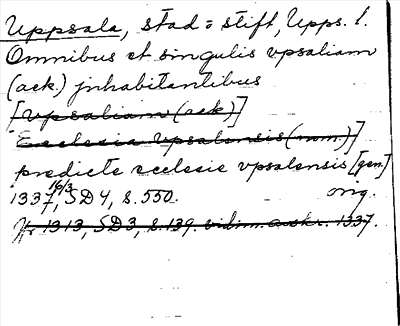 Uppsala, stad o stift, Upps. l.
Omnibus et singulis vpsaliam
(ack.) jnhabitantibus
[Vpsaliam (ack)]
Ecclesia Vpsalensis (nom.)]
predicte ecclesie vpsalensis [gen.]
1337 16/3, SD 4, s. 550. orig.
Yr 1313, SD 3, s. 139. vidim. avskr. 1337.